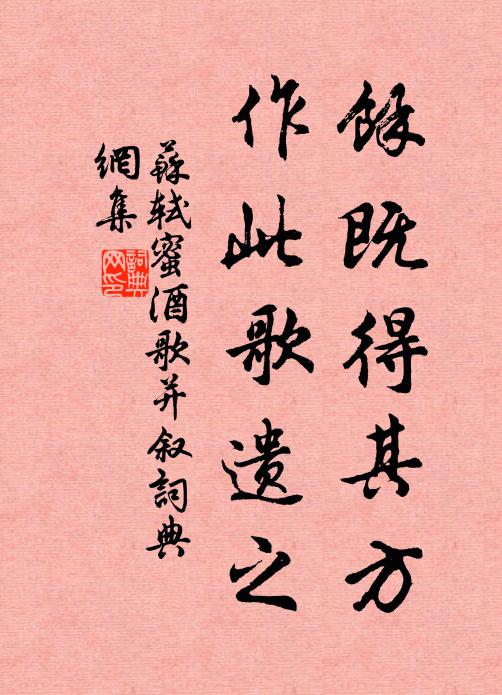 餘既得其方
作此歌遺之
蘇軾蜜酒歌并叙詞典
網集
詞典
网印